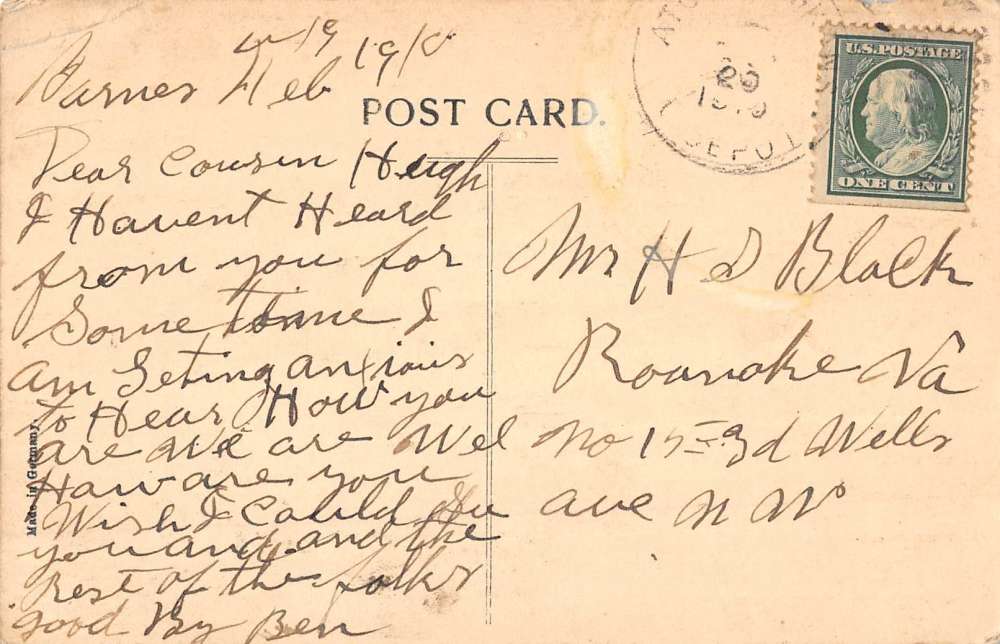 Barnes Feb 19 1910
POST CARD.
Dear Cousin Hugh
I Havent Heard
from you for
Some time I
am Geting anxious
to Hear How you
are We are Wel
Haw are you
Wish I Could See
you and and the
Rest of the folks
good By Ben
Made in Germany
20
1910
DEPOT
U.S. POSTAGE
ONE CENT
Mr H D Black
Roanoke Va
No 15 3d Wells
ave N W